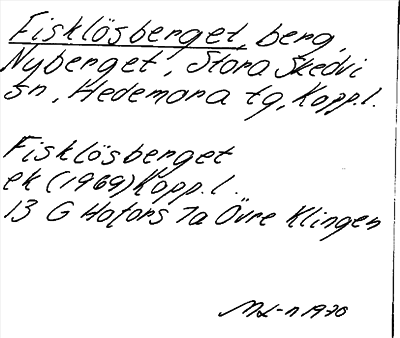 Fisklösberget, berg,
Nyberget, Stora Skedvi
sn, Hedemora tg, Kopp.l.
Fisklösberget
ek (1969) Kopp.l.
13 G Hofors 7a Övre Klingen
1970